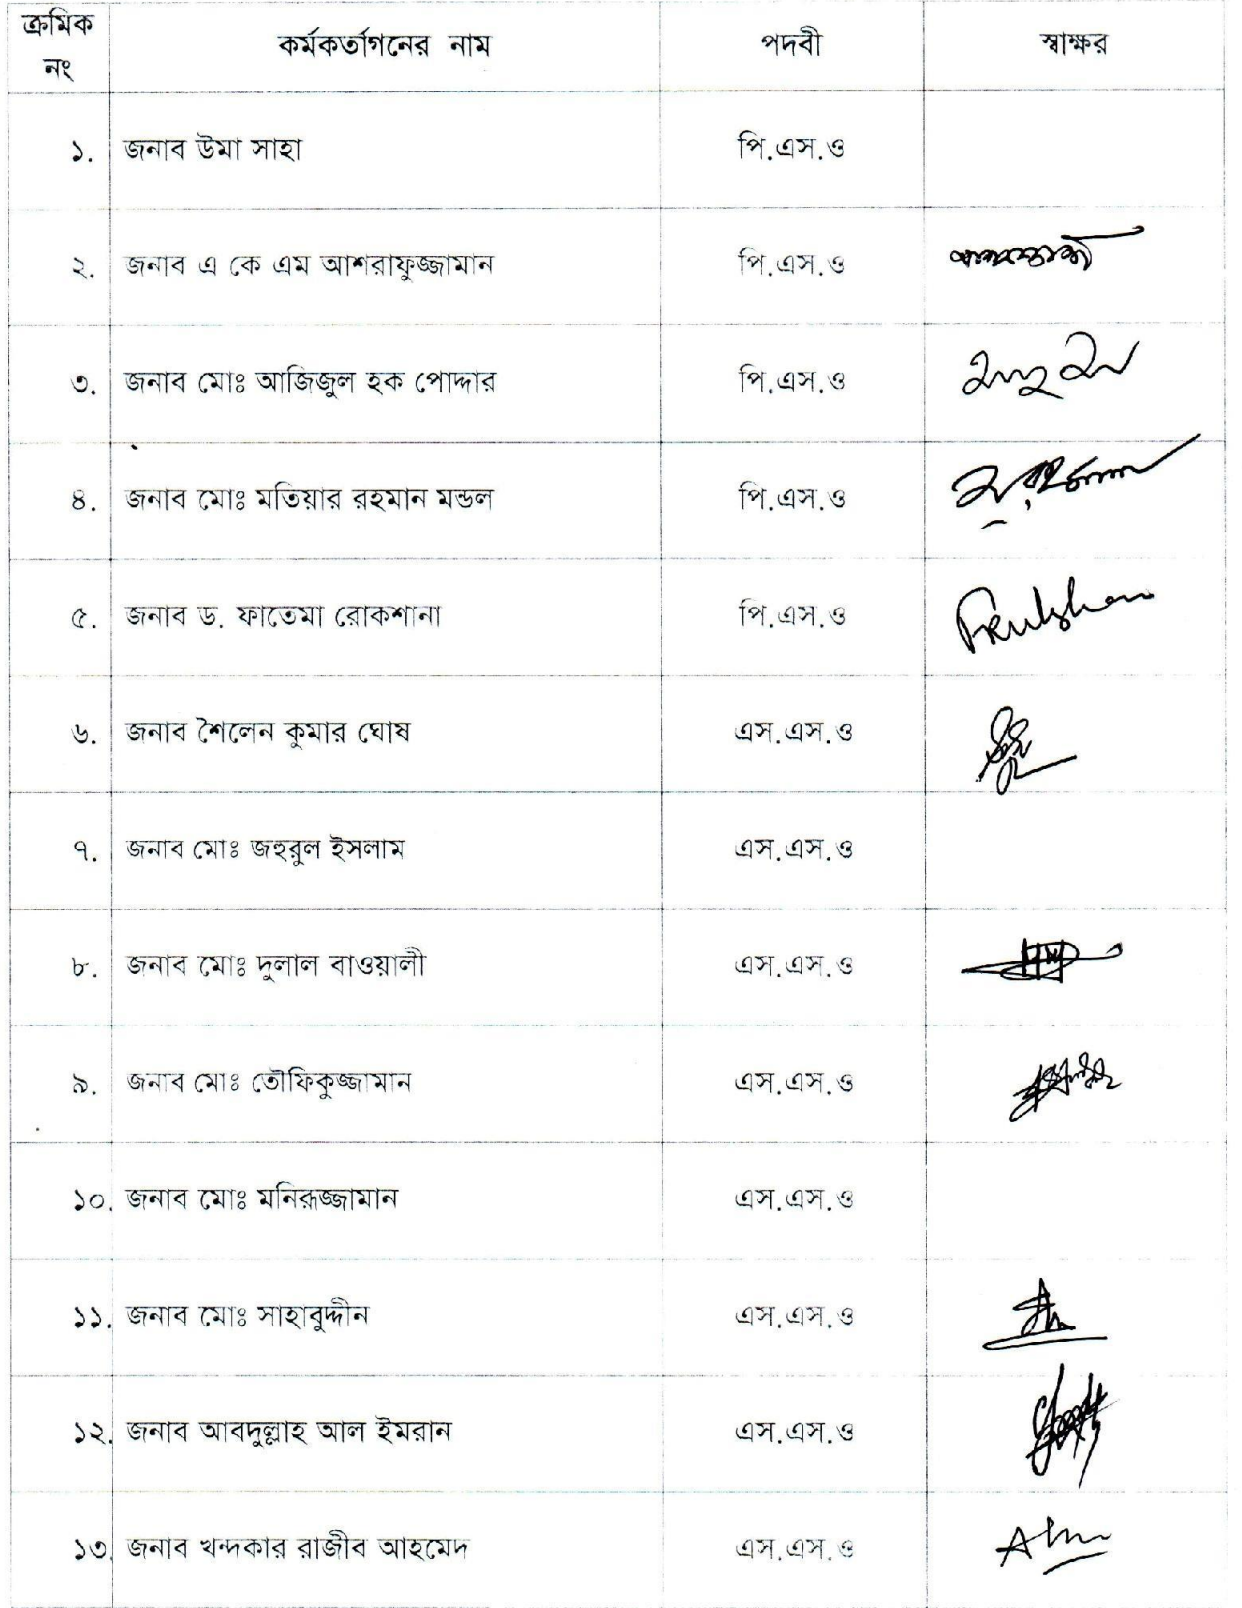 ক্রমিক নং কর্মকর্তাগনের নাম পদবী স্বাক্ষর
১. জনাব উমা সাহা পি.এস.ও
২. জনাব এ কে এম আশরাফুজ্জামান পি.এস.ও
৩. জনাব মোঃ আজিজুল হক পোদ্দার পি.এস.ও
৪. জনাব মোঃ মতিয়ার রহমান মন্ডল পি.এস.ও
৫. জনাব ড. ফাতেমা রোকশানা পি.এস.ও
৬. জনাব শৈলেন কুমার ঘোষ এস.এস.ও
৭. জনাব মোঃ জহুরুল ইসলাম এস.এস.ও
৮. জনাব মোঃ দুলাল বাওয়ালী এস.এস.ও
৯. জনাব মোঃ তৌফিকুজ্জামান এস.এস.ও
১০. জনাব মোঃ মনিরূজ্জামান এস.এস.ও
১১. জনাব মোঃ সাহাবুদ্দীন এস.এস.ও
১২. জনাব আবদুল্লাহ আল ইমরান এস.এস.ও
১৩. জনাব খন্দকার রাজীব আহমেদ এস.এস.ও